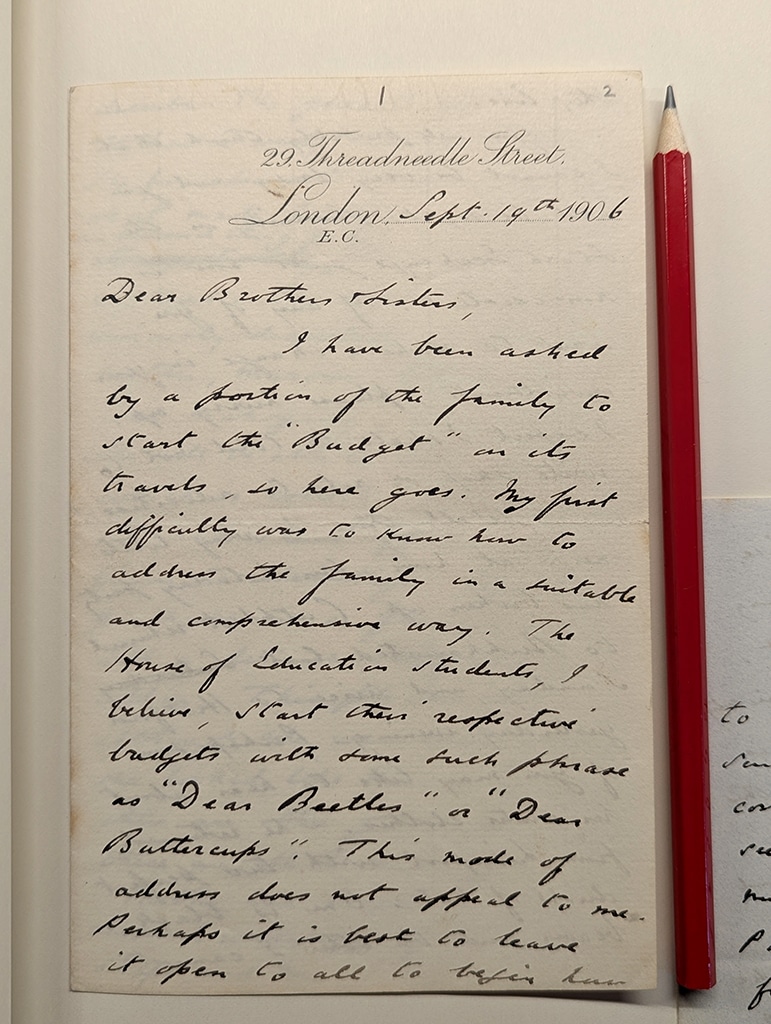 1 2
29. Threadneedle Street,
London, Sept. 19th 1906
E.C.
Dear Brothers & Sisters,
I have been asked
by a portion of the family to
start the "Budget" on its
travels, so here goes. My first
difficulty was to know how to
address the family in a suitable
and comprehensive way. The
House of Education students, I
believe, start their respective
budgets with some such phrase
as "Dear Beetles" or "Dear
Buttercups". This mode of
address does not appeal to me.
Perhaps it is best to leave
it open to all to begin how
to